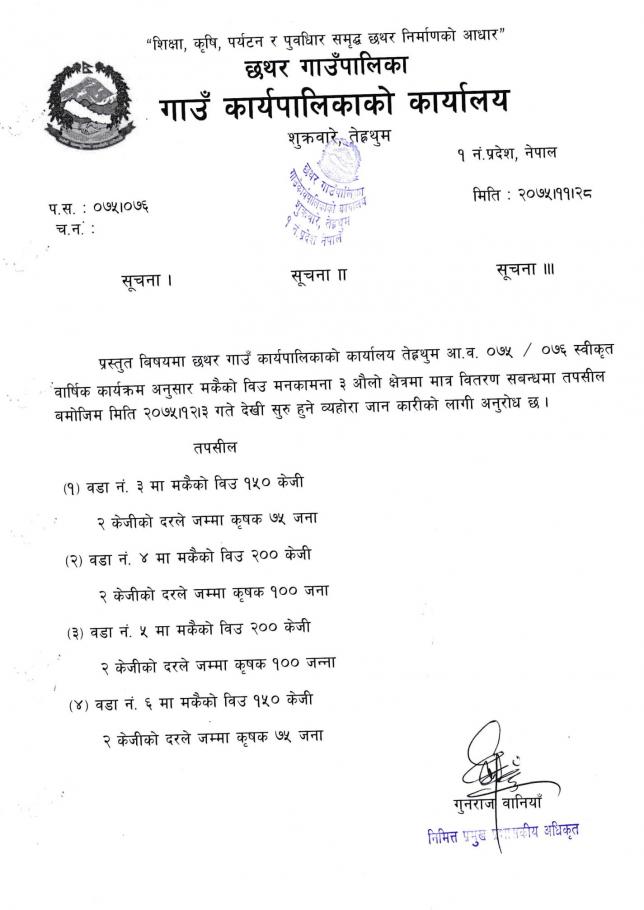 “शिक्षा, कृषि, पर्यटन र पुवधिार समृद्ध छथर निर्माणको आधार”
छथर गाउँपालिका
गाउँ कार्यपालिकाको कार्यालय
शुक्रवारे, तेह्रथुम
१ नं.प्रदेश, नेपाल
छथर गाउँपालिका
गाउँकार्यपालिकाको कार्यालय
शुक्रवारे, तेह्रथुम
१ नं प्रदेश नेपाल
मिति : २०७५।११।२८
प.स. : ०७५।०७६
च.नं :
सूचना । सूचना ॥ सूचना ॥।
प्रस्तुत विषयमा छथर गाउँ कार्यपालिकाको कार्यालय तेह्रथुम आ.व. ०७५ / ०७६ स्वीकृत
वार्षिक कार्यक्रम अनुसार मकैको विउ मनकामना ३ औलो क्षेत्रमा मात्र वितरण सबन्धमा तपसील
बमोजिम मिति २०७५।१२।३ गते देखी सुरु हुने व्यहोरा जान कारीको लागी अनुरोध छ ।
तपसील
(१) वडा नं. ३ मा मकैको विउ १५० केजी
२ केजीको दरले जम्मा कृषक ७५ जना
(२) वडा नं. ४ मा मकैको विउ २०० केजी
२ केजीको दरले जम्मा कृषक १०० जना
(३) वडा नं. ५ मा मकैको विउ २०० केजी
२ केजीको दरले जम्मा कृषक १०० जन्ना
(४) वडा नं. ६ मा मकैको विउ १५० केजी
२ केजीको दरले जम्मा कृषक ७५ जना
गुनराज वानियाँ
निमित्त प्रमुख प्रशासकीय अधिकृत